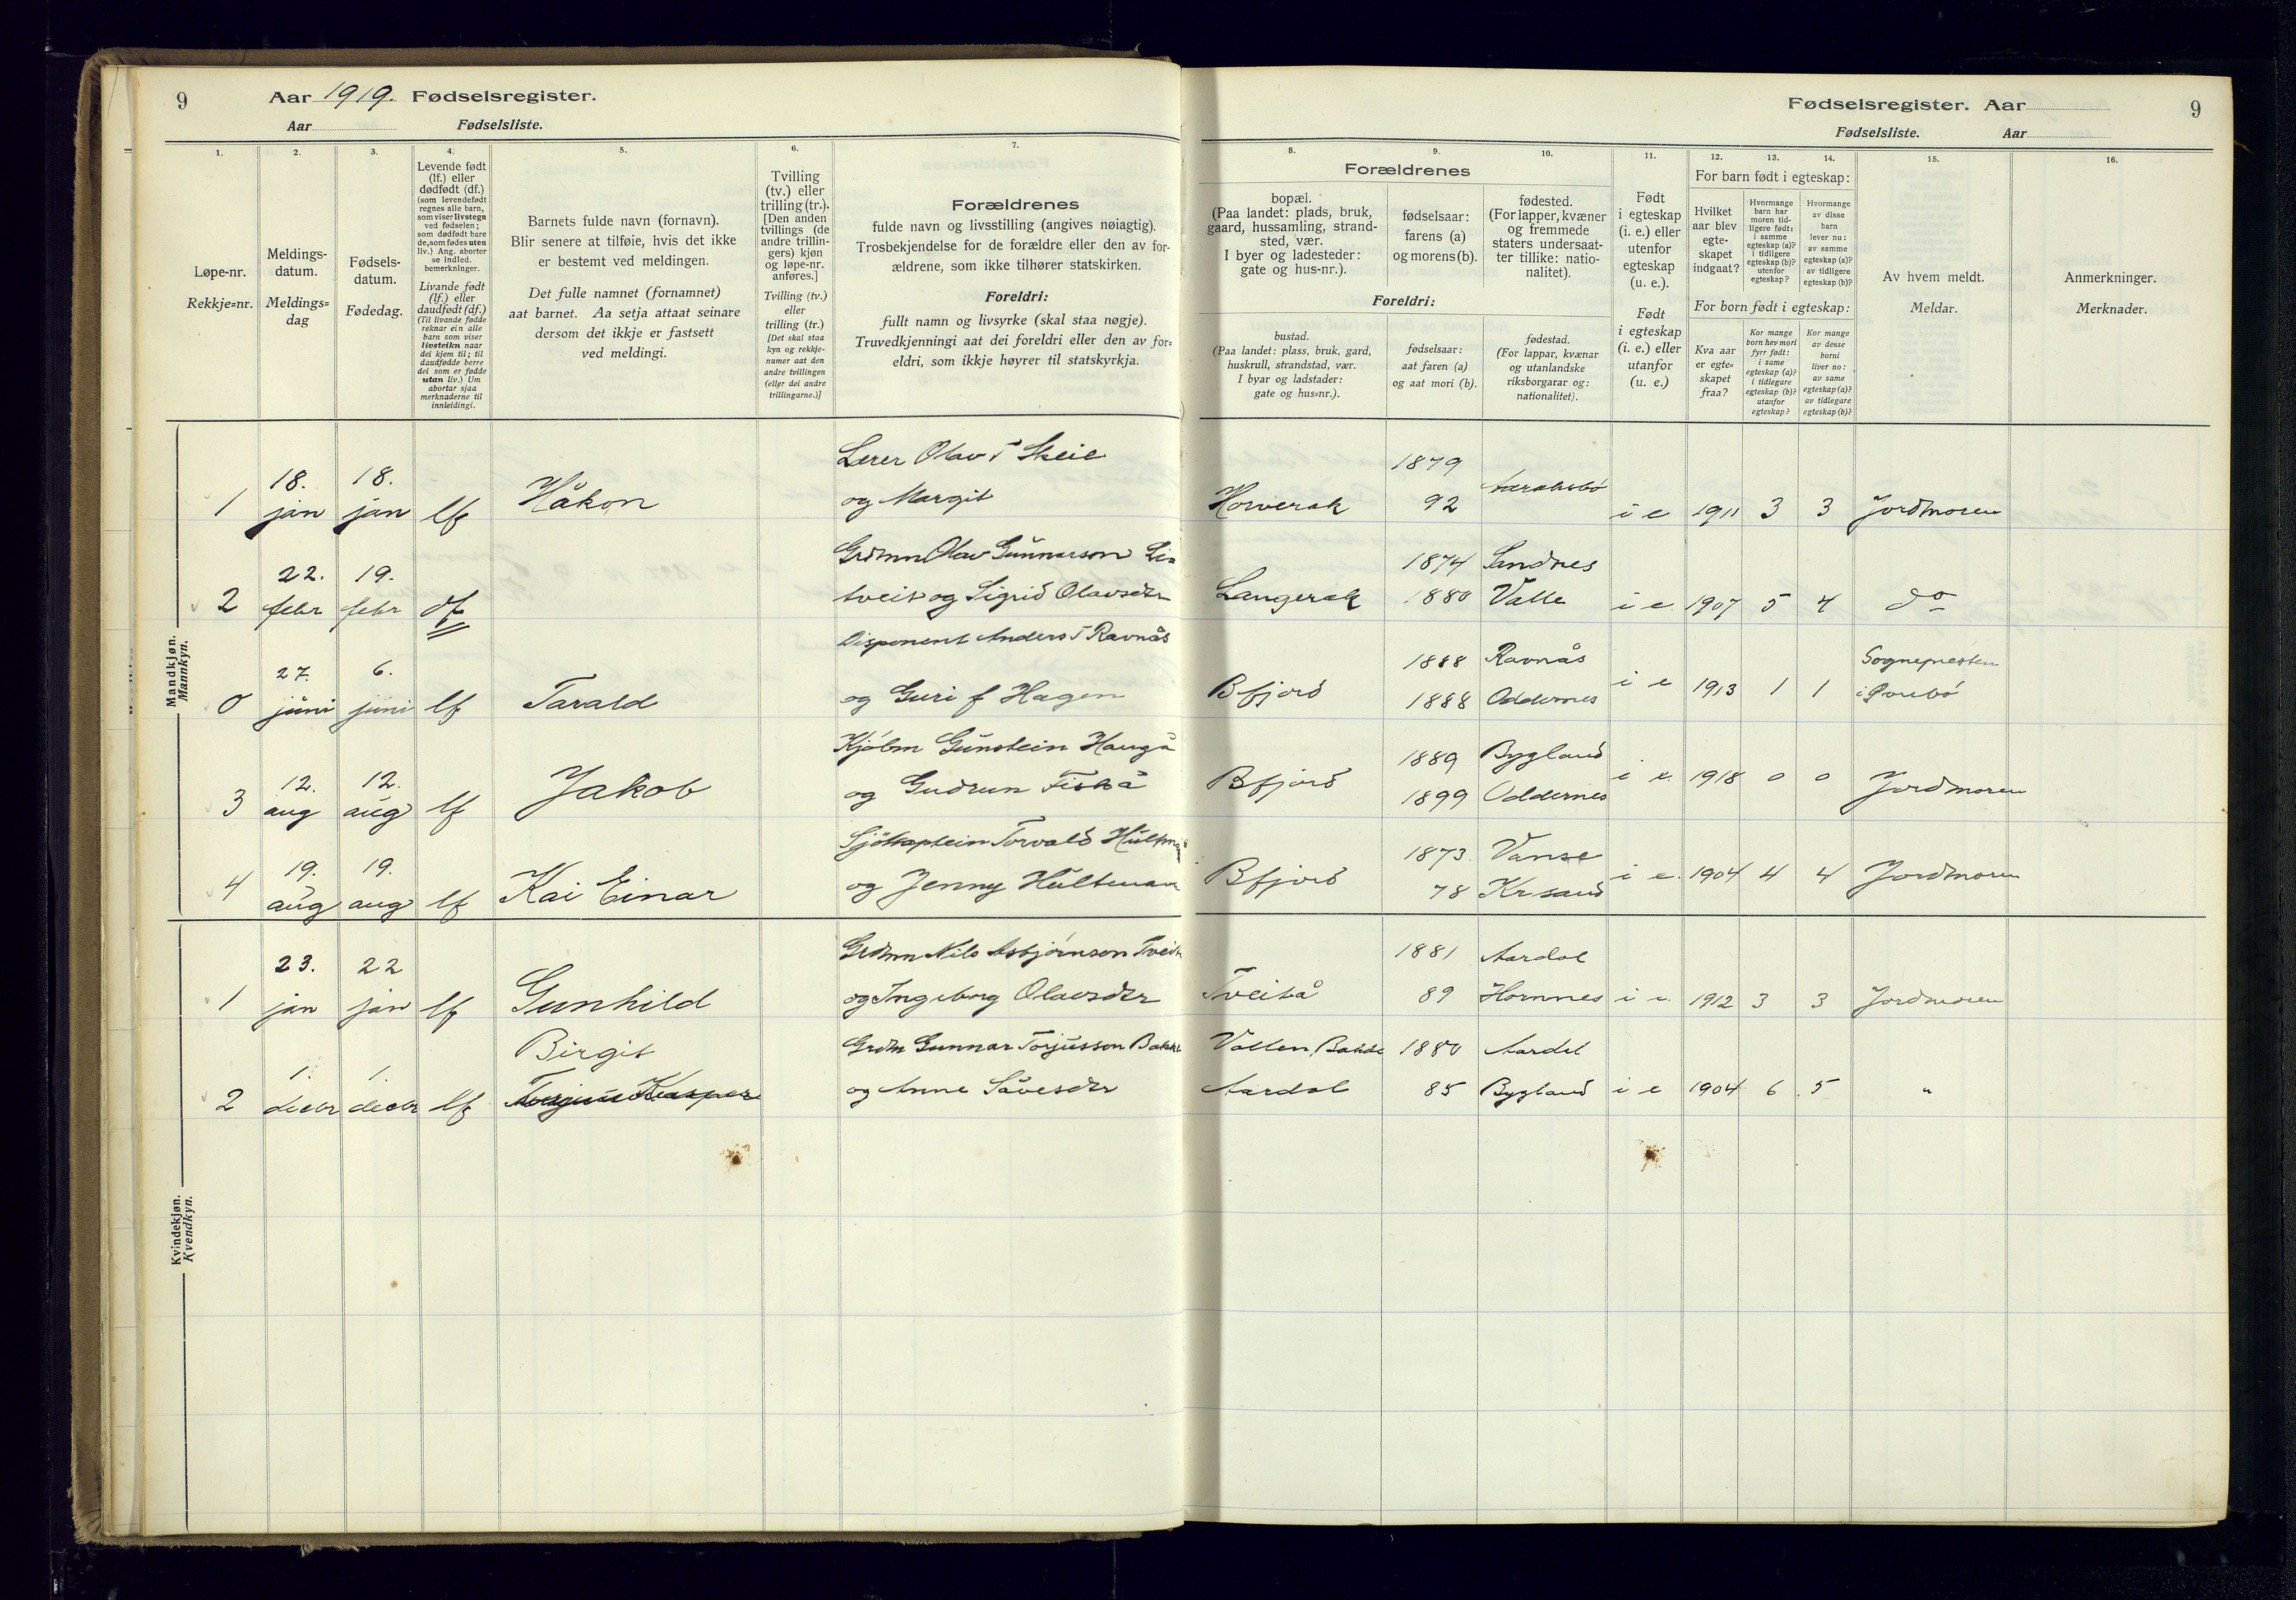 9
Aar 1919. Fødselsregister.
Aar Fødselsliste.
1.
Løpe-nr.
Rekkje=nr.
2.
Meldings-
datum.
Meldings=
dag
3.
Fødsels-
datum.
Fødedag.
4.
Levende født
(lf.) eller
dødfødt (df.)
(som levendefødt
regnes alle barn,
som viser livstegn
ved fødselen;
som dødfødt bare
de, som fødes uten
liv.) Ang. aborter
se indled.
bemerkninger.
Livande født
(lf.) eller
daudfødt (df.)
(Til livande fødde
reknar ein alle
barn som viser
livsteikn naar
dei kjem til; til
daudfødde berre
dei som er fødde
utan liv.) Um
abortar sjaa
merknaderne til
innleidingi.
5.
Barnets fulde navn (fornavn).
Blir senere at tilføie, hvis det ikke
er bestemt ved meldingen.
Det fulle namnet (fornamnet)
aat barnet. Aa setja attaat seinare
dersom det ikkje er fastsett
ved meldingi.
6.
Tvilling
(tv.) eller
trilling (tr.).
[Den anden
tvillings (de
andre trillin-
gers) kjøn
og løpe-nr.
anføres.]
Tvilling (tv.)
eller
trilling (tr.)
[Det skal staa
kyn og rekkje-
numer aat den
andre tvillingen
(eller dei andre
trillingarne.)]
7.
Forældrenes
fulde navn og livsstilling (angives nøiagtig).
Trosbekjendelse for de forældre eller den av for-
ældrene, som ikke tilhører statskirken.
Foreldri:
fullt namn og livsyrke (skal staa nøgje).
Truvedkjenningi aat dei foreldri eller den av for=
eldri, som ikkje høyrer til statskyrkja.
Mandkjøn.
Mannkyn.
1 18. jan 18. jan lf Håkon Lærer Olav T Skeie
og Margit
2 22. febr 19. febr df Grdmn Olav Gunnarson Li=
tveit og Sigrid Olavsdtr
0 27. juni 6. juni lf Tarald Disponent Anders T Ravnås
og Guri f Hagen
3 12. aug 12. aug lf Jakob Kjøbm Gunstein Haugå
og Gudrun Fiskå
4 19. aug 19. aug lf Kai Einar Sjökaptein Torvald Hultman
og Jenny Hultman
Kvindekjøn.
Kvendkyn.
1 23. jan 22 jan lf Gunhild Grdmn Nils Asbjørnson Tveit
og Ingeborg Olavsdtr
2 1. decbr 1. decbr lf Birgit Grdm Gunnar Torjusson Bakke
og Anne Såvesdtr
Fødselsregister. Aar 9
Fødselsliste. Aar
8.
Forældrenes
bopæl.
(Paa landet: plads, bruk,
gaard, hussamling, strand-
sted, vær.
I byer og ladesteder:
gate og hus-nr.).
Foreldri:
bustad.
(Paa landet: plass, bruk, gard,
huskrull, strandstad, vær.
I byar og ladstader:
gate og hus=nr.).
9.
fødselsaar:
farens (a)
og morens (b).
fødselsaar:
aat faren (a)
og aat mori (b).
10.
fødested.
(For lapper, kvæner
og fremmede
staters undersaat-
ter tillike: natio-
nalitet).
fødestad.
(For lappar, kvænar
og utanlandske
riksborgarar og:
nationalitet).
11.
Født
i egteskap
(i. e.) eller
utenfor
egteskap
(u. e.).
Født
i egteskap
(i. e.) eller
utanfor
(u. e.)
12.
For barn født i egteskap:
Hvilket
aar blev
egte-
skapet
indgaat?
For born født i egteskap:
Kva aar
er egte=
skapet
fraa?
13.
Hvormange
barn har
moren tid-
ligere født:
i samme
egteskap (a)?
i tidligere
egteskap (b)?
utenfor
egteskap?
Kor mange
born hev mori
fyrr født:
i same
egteskap (a)?
i tidlegare
egteskap (b)?
utanfor
egteskap?
14.
Hvormange
av disse
barn
lever nu:
av samme
egteskap (a)?
av tidligere
egteskap (b)?
Kor mange
av desse
borni
liver no:
av same
egteskap (a)?
av tidlegare
egteskap (b)?
15.
Av hvem meldt.
Meldar.
16.
Anmerkninger.
Merknader.
Horverak 1879
92 i e 1911 3 3 Jordmoren
Langerak 1874 Sandnes
1880 Valle i e 1907 5 4 do
Bfjord 1888 Ravnås
1888 Oddernes i e 1913 1 1 Sognepresten
i
Bfjord 1889 Bygland
1899 Oddernes i e. 1918 0 0 Jordmoren
Bfjord 1873. Vanse
78 Krsand i e. 1904 4 4 Jordmoren
Tveitå 1881 Aardal
89 Hornnes i e. 1912 3 3 Jordmoren
Vollen, Bakke 1880 Aardal
Aardal 85 Bygland i e 1904 6 5 "